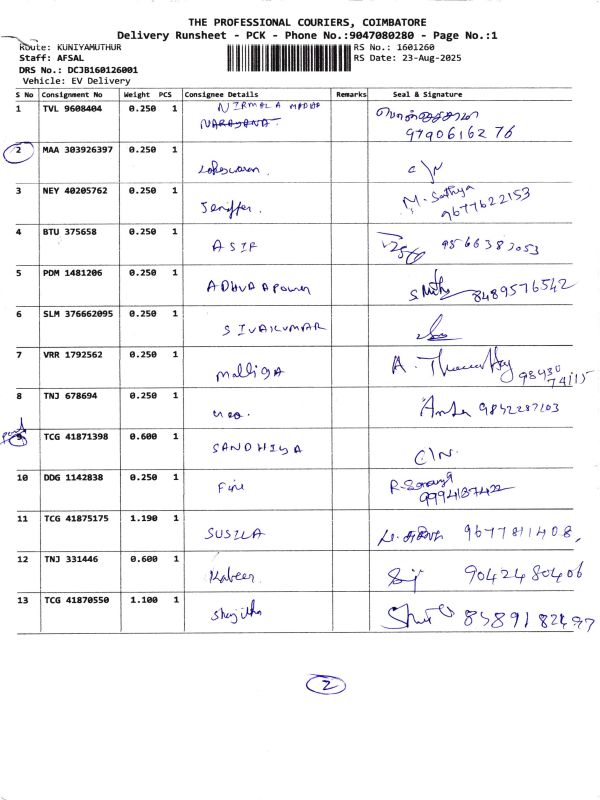 THE PROFESSIONAL COURIERS, COIMBATORE
Delivery Runsheet - PCK - Phone No.:9047080280 - Page No.:1
Route: KUNIYAMUTHUR
RS No.: 1601260
Staff: AFSAL
RS Date: 23-Aug-2025
DRS No.: DCJB160126001
Vehicle: EV Delivery
S No Consignment No Weight PCS Consignee Details Remarks Seal & Signature
1 TVL 9608404 0.250 1 NIRMALA MADHA
NARAYANA.
9790616276
2 MAA 303926397 0.250 1 Lokeswaran. C/N
3 NEY 40205762 0.250 1 Jeniffer. M. Sathya
9677622153
4 BTU 375658 0.250 1 ASIF 9566383053
5 PDM 1481206 0.250 1 8489576542
6 SLM 376662095 0.250 1 SIVAKUMAR
7 VRR 1792562 0.250 1 Malliga A.
98430
74115
8 TNJ 678694 0.250 1 9842287103
9 TCG 41871398 0.600 1 SANDHIYA C/N.
10 DDG 1142838 0.250 1 Fine
9994187422
11 TCG 41875175 1.190 1 SUSILA 9677811408,
12 TNJ 331446 0.600 1 Kabeer. 9042480406
13 TCG 41870550 1.100 1 8589182497
2